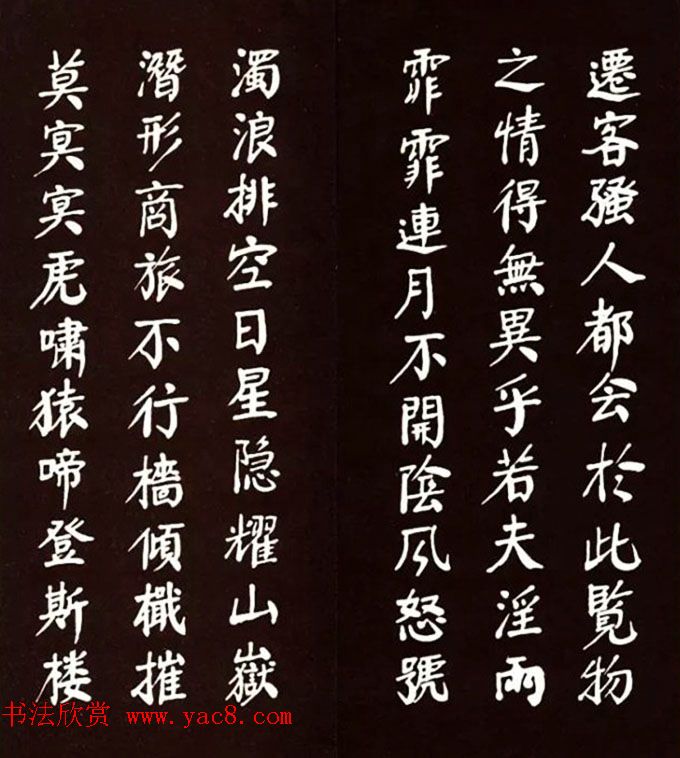 遷客骚人都会於此覧物
之情得無異乎若夫淫雨
霏霏連月不開陰风怒號
濁浪排空日星隐耀山嶽
潛形商旅不行檣傾檝摧
莫冥冥虎嘯猿啼登斯楼
书法欣赏 www.yac8.com